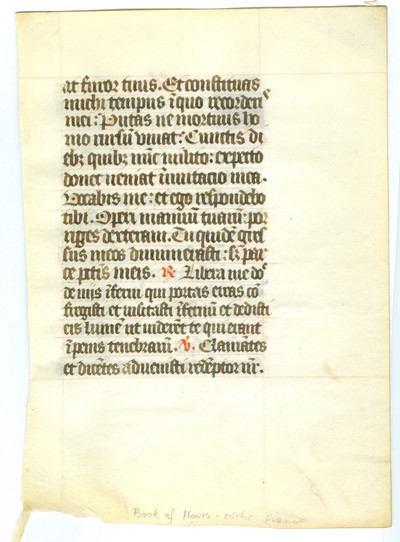 at furor tuus. Et constituas
michi tempus ĩ quo recorderis
mei: Putas ne mortuus ho
mo rursũ vivat: Cunctis di
ebȝ quibȝ nũc milito: expecto
donec veniat ĩmutacio mea.
Vocabis me: et ego respondebo
tibi. Operi manuũ tuarũ: por
riges dexteram. Tu quidẽ gres
sus meos dinumerasti: sȝ par
ce pctĩs meis. ℟. Libera me dñe
de viis ĩferni qui portas ereas cõ
fregisti et visitasti ĩfernũ et dedisti
eis lumẽ ut viderẽt te qui erant
ĩ penis tenebrarũ. ℣. Clamãtes
et dicẽtes advenisti redẽptor nr̃.
Book of Hours - France